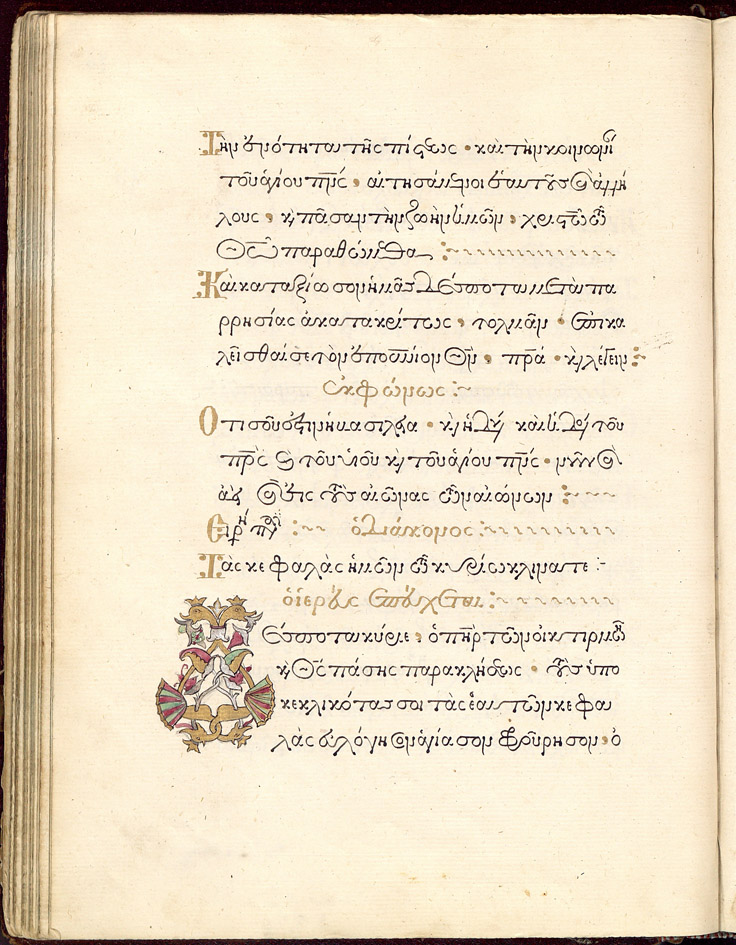 Τὴν ἑνότητα τῆς πίστεως · καὶ τὴν κοινωνί
τοῦ ἁγίου πν̅ς, αἰτησάμενοι ἑαυτοὺς καὶ ἀλλή
λους, καὶ πᾶσαν τὴν ζωὴν ἡμῶν, χριστῷ τῷ
Θῶ̅ παραθώμεθα :~
Καὶ καταξίωσον ἡμᾶς δέσποτα μετὰ πα
ρρησίας ἀκατακρίτως, τολμᾶν · ἐπικα
λεῖσθαί σε τὸν ἐπουνιον Θν̅, πρα̅ · καὶ λέγειν :
Ἐκφώνως :~
Ὅτι σοῦ ἐστιν ἡ βασιλεία · καὶ ἡ δύ καὶ ἡ δόξα τοῦ
πρ̅ς καὶ τοῦ υἱοῦ καὶ τοῦ ἁγίου πν̅ς · νῦν καὶ
ἀεὶ καὶ εἰς τοὺς αἰῶνας τῶν αἰώνων :~
Εἰρή πᾶσι :~ ὁ διάκονος :~
Τὰς κεφαλὰς ἡμῶν τῷ κυρίῳ κλίνατε :~
ὁ ἱερεὺς ἐπεύχεται :~
Δέσποτα κύριε, ὁ πη̅ρ τῶν οἰκτιρμῶν
καὶ Θς̅ πάσης παρακλήσεως · τοὺς ὑπο
κεκλικότας σοι τὰς ἑαυτῶν κεφα
λὰς εὐλόγησον ἁγίασον φρούρησον, ὁ